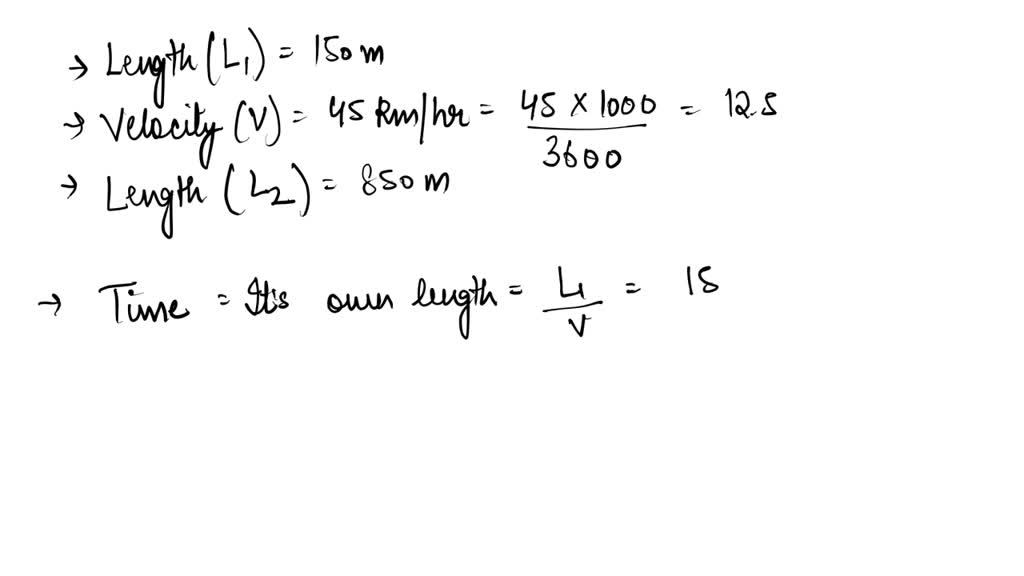 → Length (L₁) = 150 m
→ Velocity (V) = 45 km/hr = 45 × 1000 / 3600 = 12.5
→ Length (L₂) = 850 m
→ Time = It's own length = L₁ / V = 15